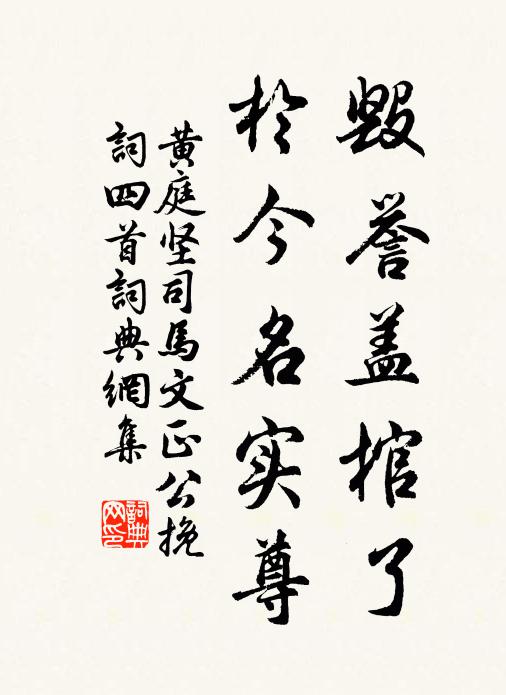 毁誉盖棺了
於今名实尊
黄庭坚司馬文正公挽
詞四首詞典網集
詞典网印